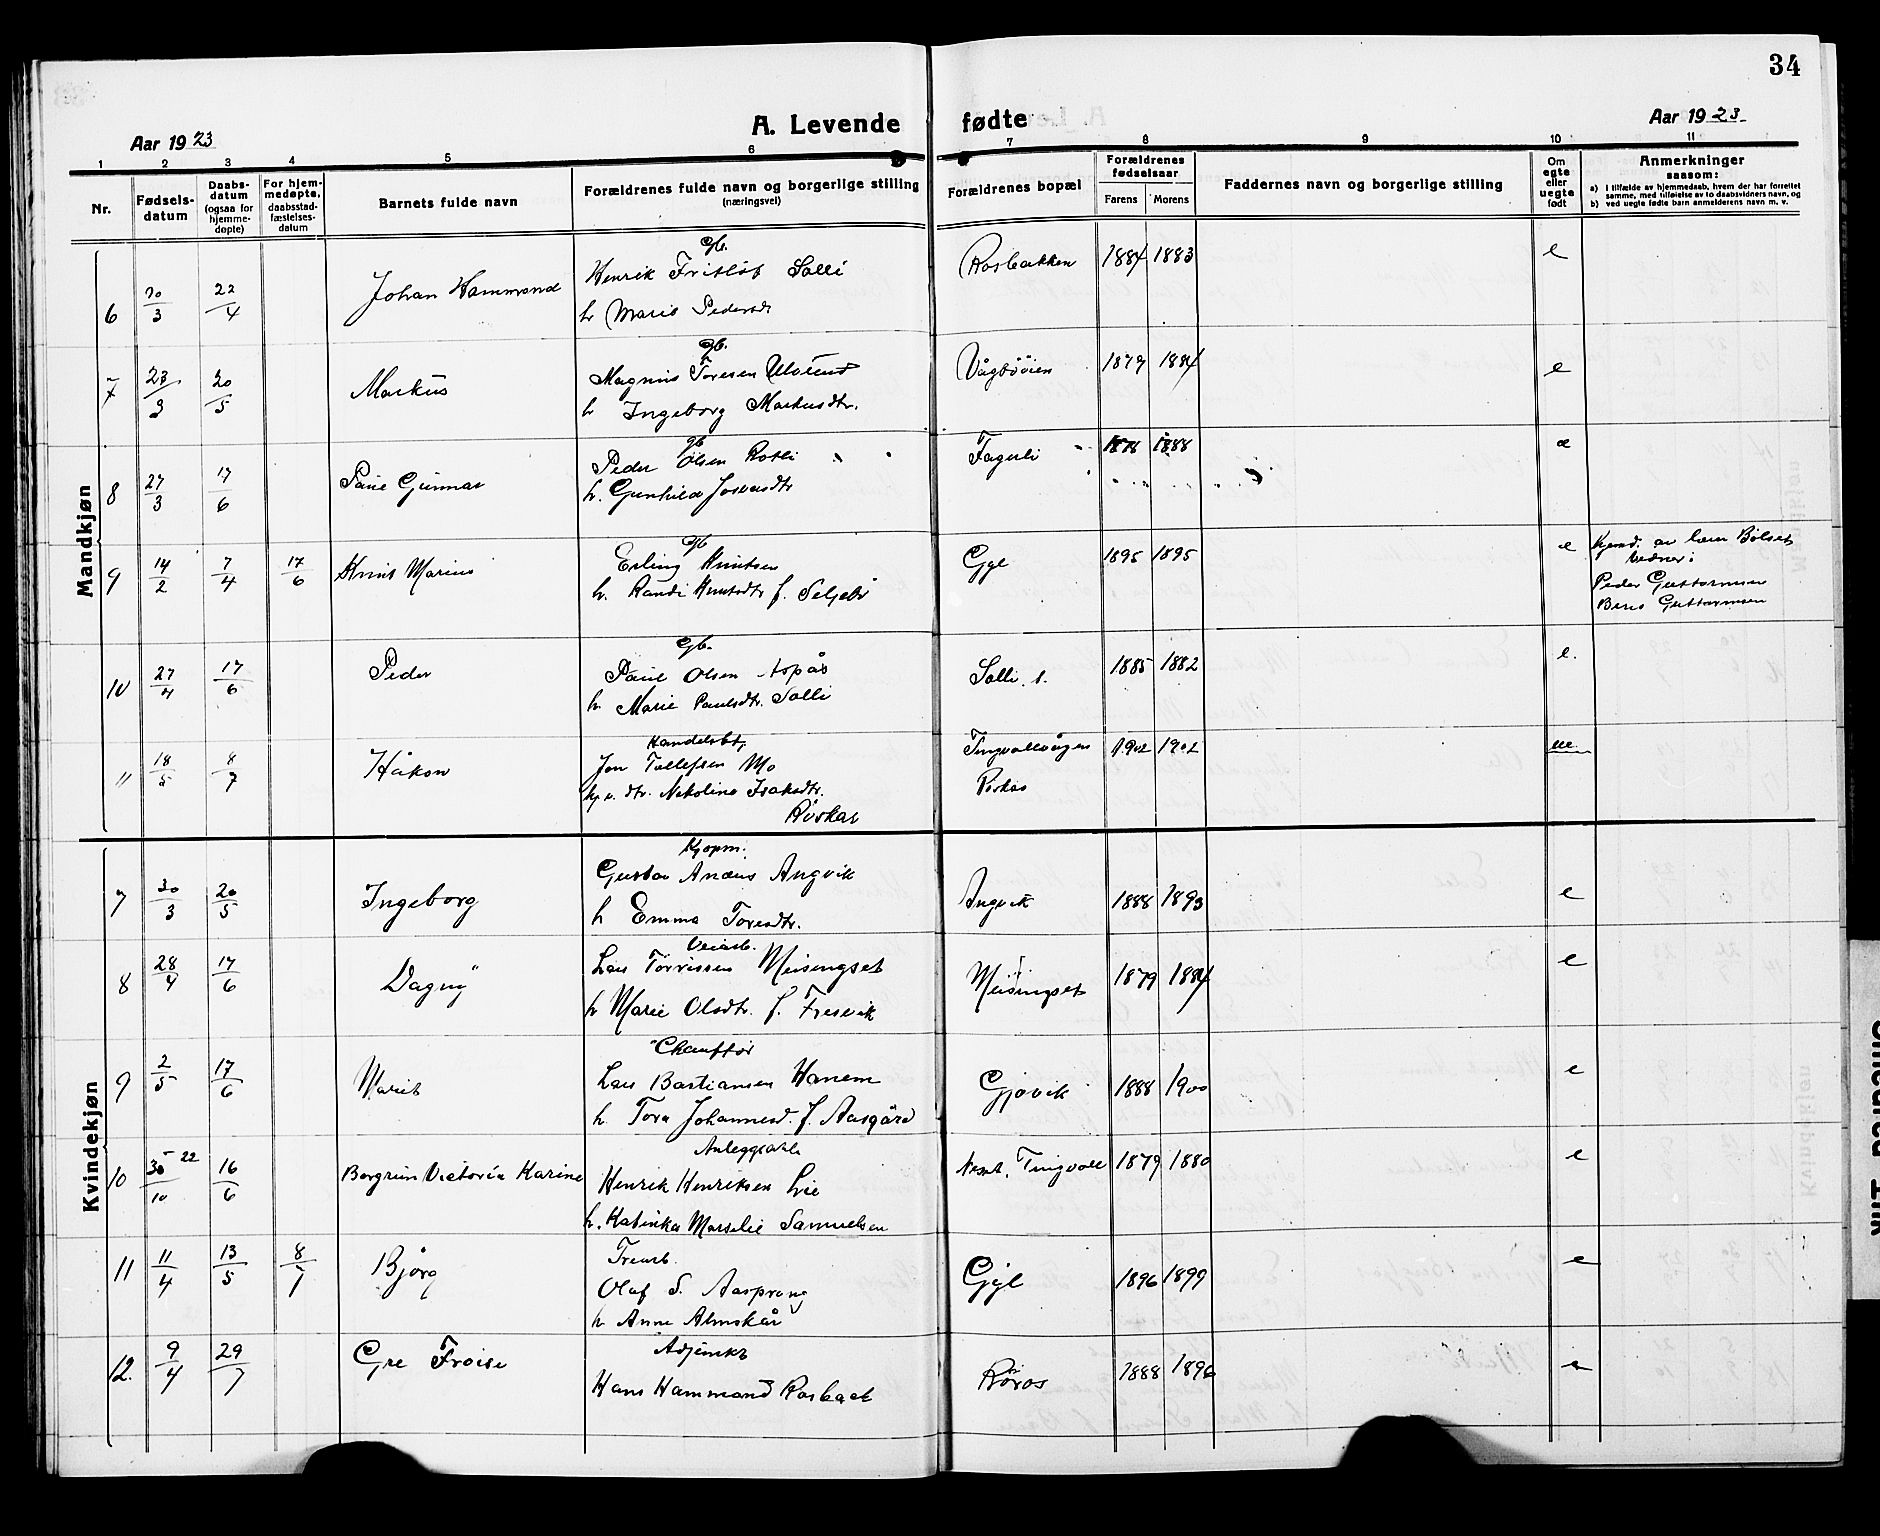 34
Aar 1923
A. Levende fødte
Aar 1923
1 2 3 4 5 6 7 8 9 10 11
Nr.
Fødsels-
datum
Daabs-
datum
(ogsaa for
hjemme-
døpte)
For hjem-
medøpte,
daabsstad-
fæstelses-
datum
Barnets fulde navn
Forældrenes fulde navn og borgerlige stilling
(næringsvei)
Forældrenes bopæl
Forældrenes
fødselsaar
Farens Morens
Faddernes navn og borgerlige stilling
Om
egte
eller
uegte
født
Anmerkninger
saasom:
a) I tilfælde av hjemmedaab, hvem der har forrettet
samme, med tilføielse av to daabsvidners navn, og
b) ved uegte fødte barn anmelderens navn m. v.
Mandkjøn
gb.
6 30/3 22/4 Johan Hammond Henrik Fritlöf Solli Rosbakken 1884 1883 e
h Marie Pedersdt
gb.
7 23/3 20/5 Markus Magnus Toresen Ulvund Vågbøien 1879 1884 e
h Ingeborg Markusdtr.
gb
8 27/3 17/6 Paul Gunnar Peder Olsen Rotli Fagerli 1878 1888 e
h. Gunhild
gb
9 14/2 7/4 17/6 Knut Marius Erling Knutsen Gyl 1895 1895 e
h. Randi Knutsdtr f. Seljebø
Hjemd. av lærer Bölset
Vidner:
Peder Guttormsen
Guttormsen
gb.
10 27/4 17/6 Peder Paul Olsen Aspås Solli. 1885 1882 e.
h. Marie Paulsdtr. Solli
Handelsbt.
11 18/5 8/7 Håkon Jon Tollefsen Mo Tingvollvågen 1902 1902 ue.
dtr. Nikoline Isaksdtr. Röskar
Röskar
Kvindekjøn
Kjøpm.
7 30/3 20/5 Ingeborg Gustav Anæus Angvik Angvik 1888 1893 e
h Emma Toresdtr.
Veiarb.
8 28/4 17/6 Dagny Lars Torrissen Meisingset Meisingset 1879 1884 e
h Marie Olsdtr. f. Fresvik
Chauffør
9 2/5 17/6 Marit Lars Bastiansen Hanem Gjøvik 1888 1900 e
h. Tora Johannesd. f. Aasgård
10 30/10 22 16/6 Borgrun Victoria Karine Henrik Henriksen Lie Neset, Tingvoll 1879 1880 e
h. Katinka Marselie Samuelsen
11 11/4 13/5 8/7 Bjørg Olaf S. Aasprong Gyl 1896 1899 e
h Anne Almskår
Adjunkt
12. 9/4 29/7 Gre Froise Hans Hammond Rosbach Röros 1888 1896 e